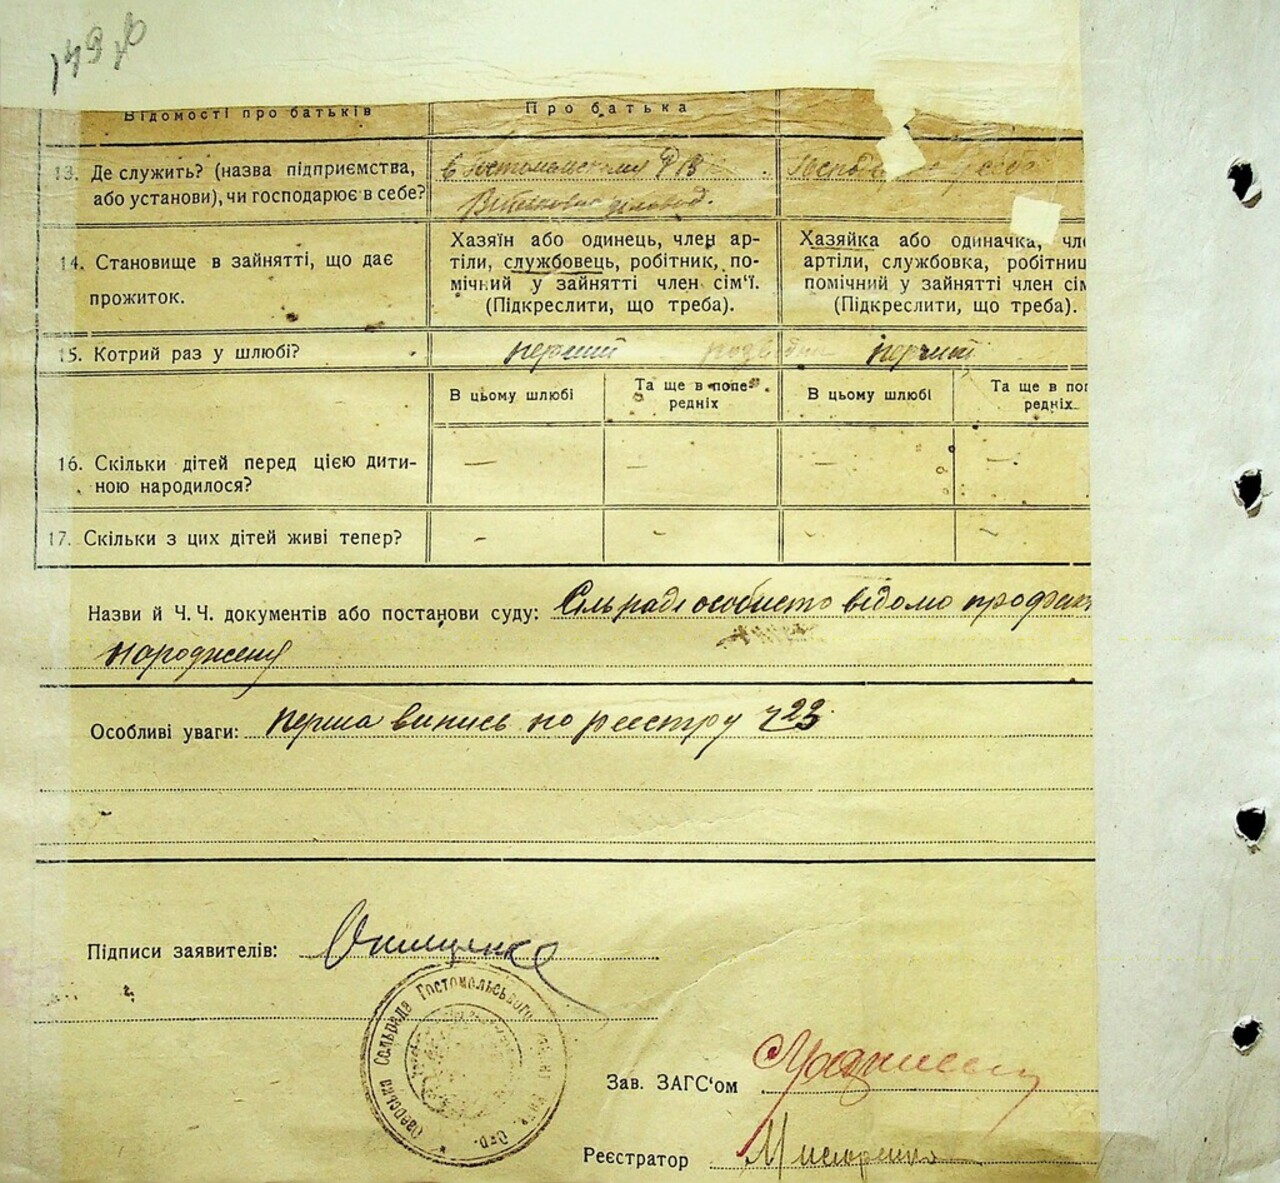 Відомості про батьків
Про батька
13. Де служить? (назва підприємства,
або установи), чи господарює в себе?
в Гостомельским РВ
14. Становище в зайнятті, що дає
прожиток.
Хазяїн або одинець, член ар-
тіли, службовець, робітник, по-
мічний у зайнятті член сім'ї.
(Підкреслити, що треба).
Хазяйка або одиначка, чле
артіли, службовка, робітниц
помічний у зайнятті член сім
(Підкреслити, що треба).
15. Котрий раз у шлюбі?
перший
перший
В цьому шлюбі
Та ще в попе-
редніх
В цьому шлюбі
Та ще в поп
редніх
16. Скільки дітей перед цією дити-
ною народилося?
17. Скільки з цих дітей живі тепер?
Назви й Ч. Ч. документів або постанови суду: Сільраді особисто відомо про факт
народження
Особливі уваги: перша випись по реєстру ч 23
Підписи заявителів: Онищенко
Сільрада Гостомольського
Зав. ЗАГС'ом
Реєстратор